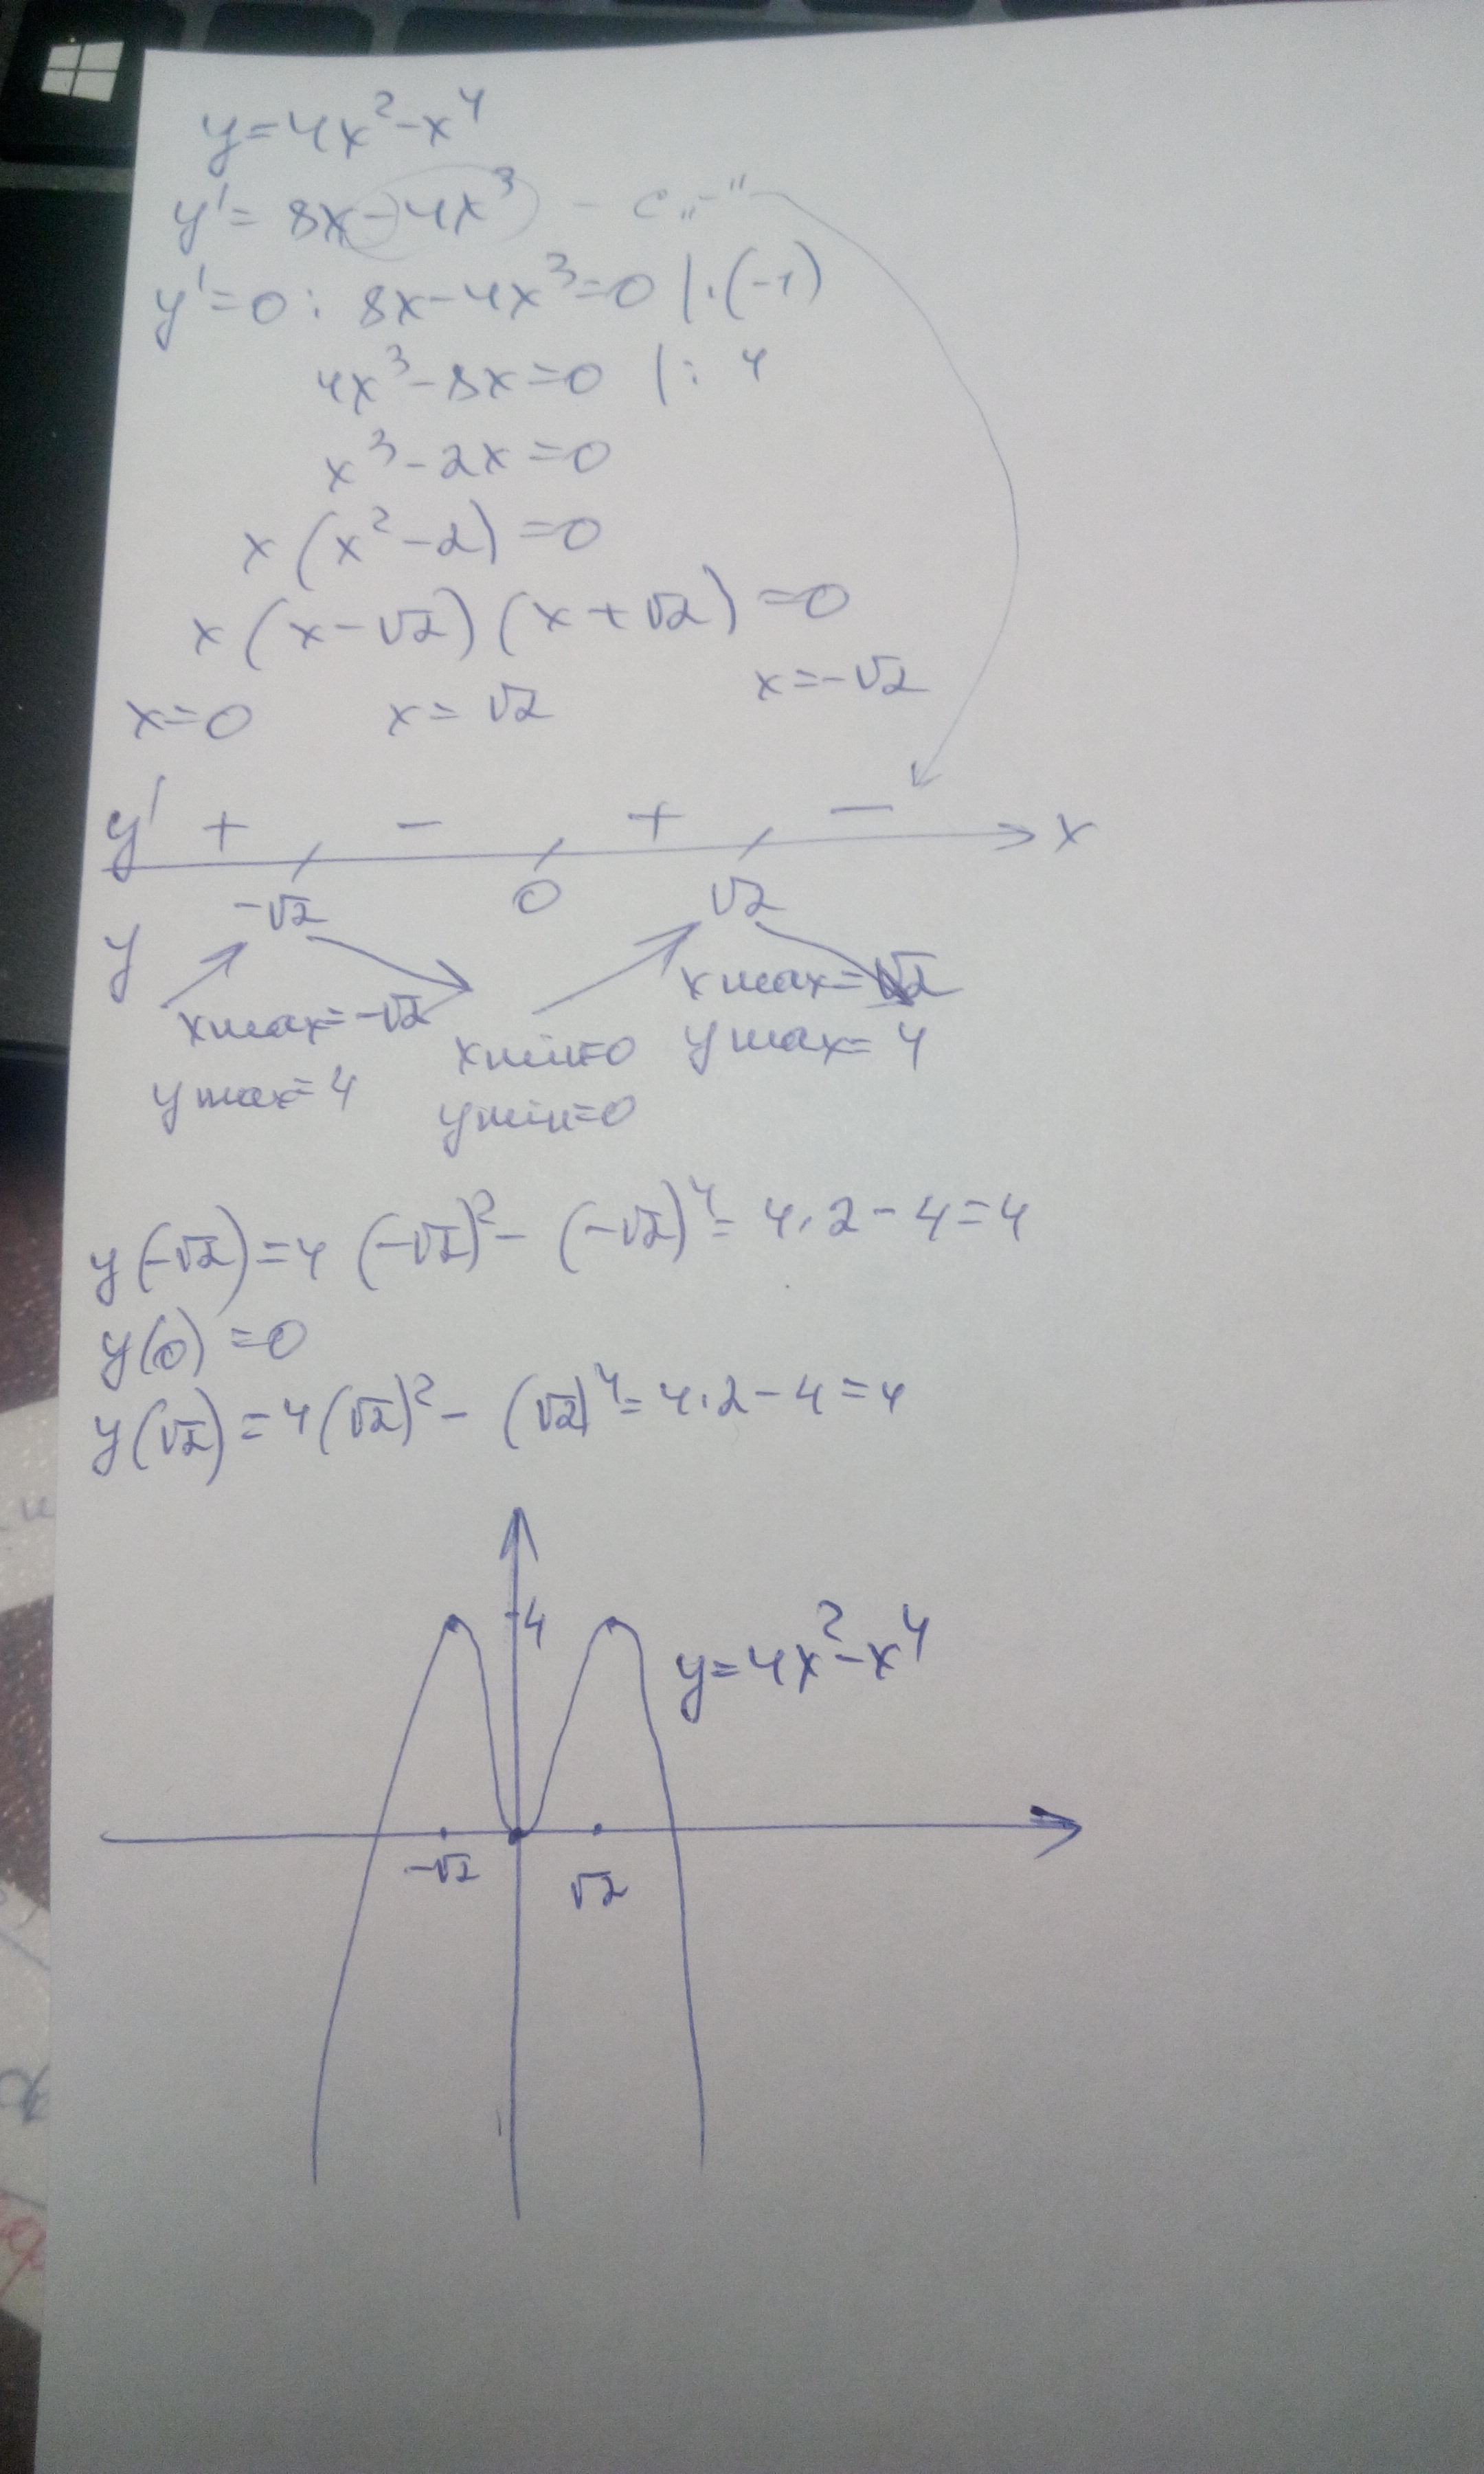 y=4x²-x⁴
y'=8x-4x³ - с „-"
y'=0: 8x-4x³=0 |·(-1)
4x³-8x=0 |:4
x³-2x=0
x(x²-2)=0
x(x-√2)(x+√2)=0
x=0 x=√2 x=-√2
y' + - + - x
-√2 0 √2
y
xmax=-√2 xmin=0 xmax=√2
ymax=4 ymin=0 ymax=4
y(-√2)=4(-√2)²-(-√2)⁴=4·2-4=4
y(0)=0
y(√2)=4(√2)²-(√2)⁴=4·2-4=4
4
y=4x²-x⁴
-√2 √2